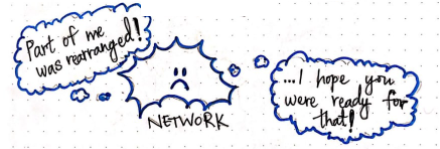 Part of me
was rearranged!
NETWORK
...I hope you
were ready for
that!